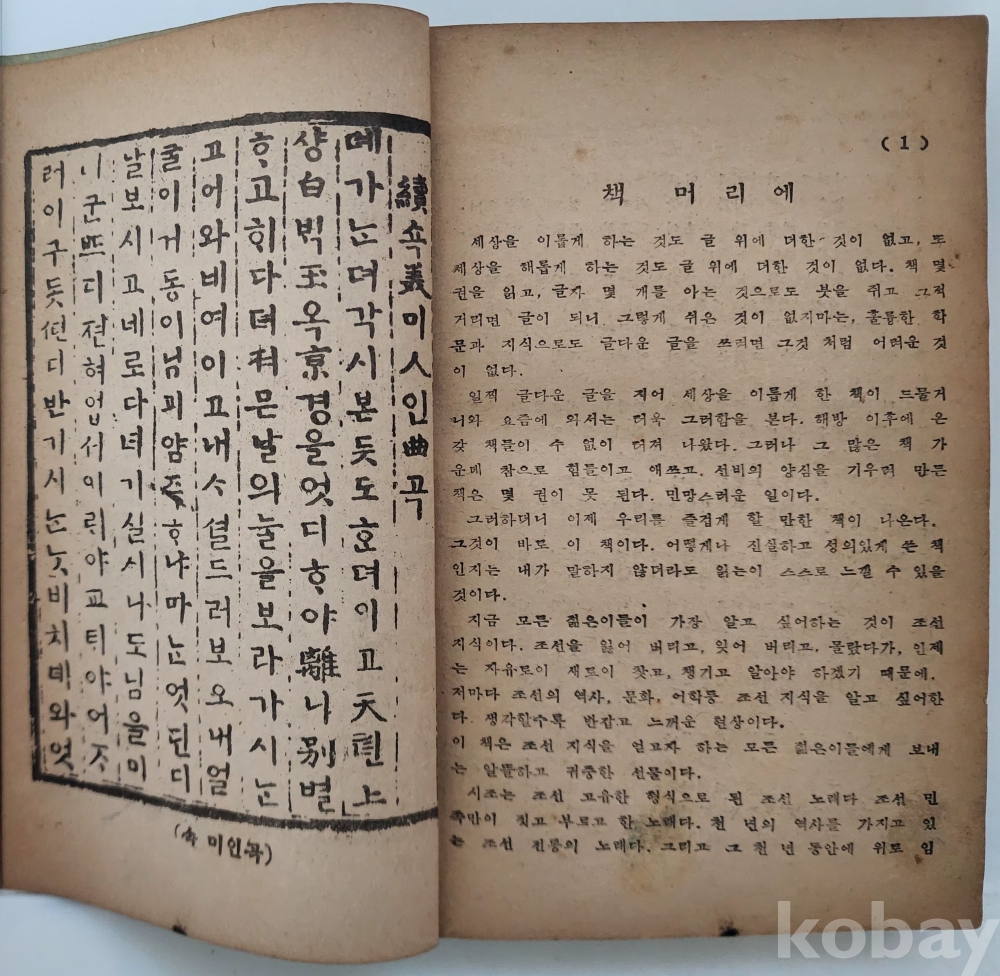 續쇽美미人인曲곡
뎨가ᄂᆞᆫ뎌각시본듯도ᄒᆞ뎌이고天텬上
샹白ᄇᆡᆨ玉옥京경을엇디ᄒᆞ야離니別별
ᄒᆞ고ᄒᆡ다뎌져믄날의눌을보라가시ᄂᆞᆫ
고어와네여이고내ᄉᆞ셜드러보오내얼
굴이거동이님괴얌즉ᄒᆞ냐마ᄂᆞᆫ엇딘디
날보시고네로다녀기실시나도님을미
더군ᄠᅳ디젼혀업서이릐야교틔야어ᄌᆞ
러이구돗ᄯᅥᆫ디반기시ᄂᆞᆫᄂᆞᆺ비치녜와엇
(속 미인곡)
(1)
책 머리에
세상을 이롭게 하는 것도 글 위에 더한 것이 없고, 또
세상을 해롭게 하는 것도 글 위에 더한 것이 없다. 책 몇
권을 읽고, 글자 몇 개를 아는 것으로도 붓을 쥐고 그적
거리면 글이 되니 그렇게 쉬운 것이 없지마는, 훌륭한 학
문과 지식으로도 글다운 글을 쓰려면 그것 처럼 어려운 것
이 없다.
일찍 글다운 글을 지어 세상을 이롭게 한 책이 드물거
니와 요즈에 와서는 더욱 그러함을 본다. 해방 이후에 온
갖 책들이 수 없이 터져 나왔다. 그러나 그 많은 책 가
운데 참으로 힘들이고 애쓰고, 선비의 양심을 기우려 만든
책은 몇 권이 못 된다. 민망스러운 일이다.
그러하더니 이제 우리를 즐겁게 할 만한 책이 나온다.
그것이 바로 이 책이다. 어떻게나 진실하고 성의있게 쓴 책
인지는 내가 말하지 않더라도 읽는이 스스로 느낄 수 있을
것이다.
지금 모든 젊은이들이 가장 알고 싶어하는 것이 조선
지식이다. 조선을 잃어 버리고, 잊어 버리고, 몰랐다가, 인제
는 자유로이 새로이 찾고, 챙기고 알아야 하겠기 때문에.
저마다 조선의 역사, 문화, 어학등 조선 지식을 알고 싶어한
다. 생각할수록 반갑고 느꺼운 현상이다.
이 책은 조선 지식을 얻고자 하는 모든 젊은이들에게 보내
는 알뜰하고 귀중한 선물이다.
시조는 조선 고유한 형식으로 된 조선 노래다 조선 민
족만이 짓고 부르고 한 노래다. 천 년의 역사를 가지고 있
는 조선 전통의 노래다. 그리고 그 천 년 동안에 위로 임
kobay